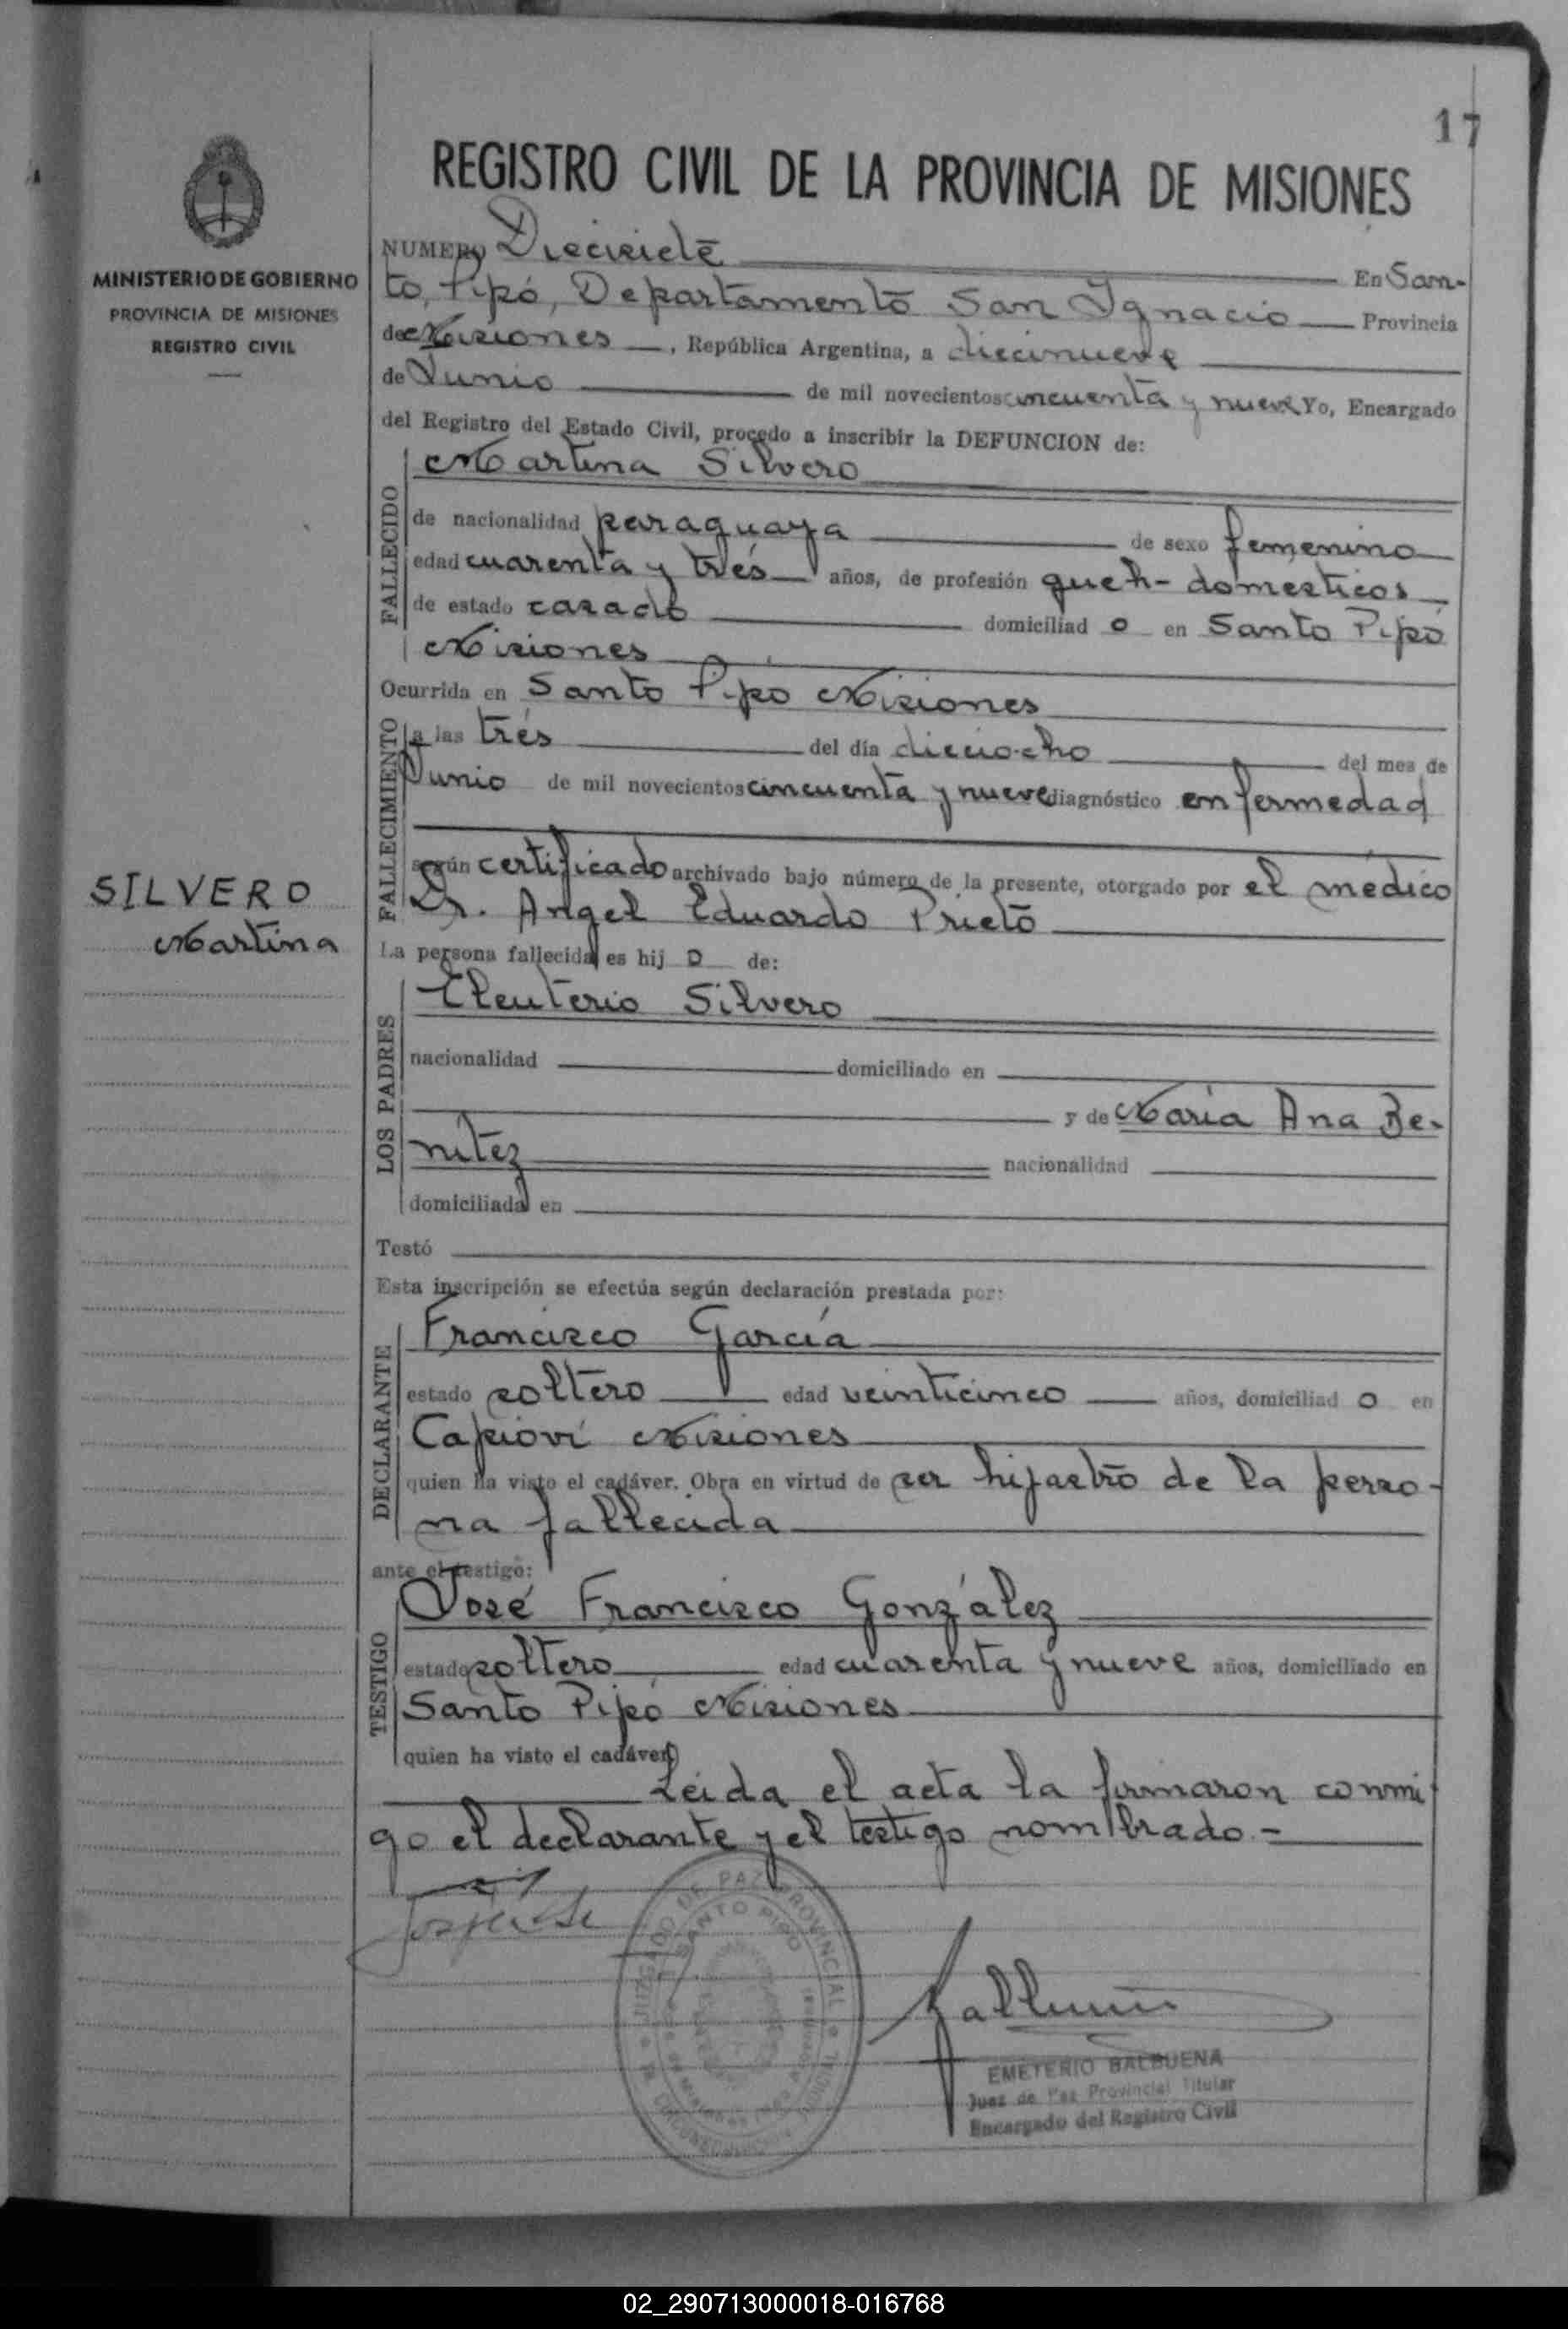 17
REGISTRO CIVIL DE LA PROVINCIA DE MISIONES
MINISTERIO DE GOBIERNO
PROVINCIA DE MISIONES
REGISTRO CIVIL
NUMERO Diecisiete En San-
to Pipó, Departamento San Ignacio Provincia
de Misiones, República Argentina, a diecinueve
de Junio de mil novecientos cincuenta y nueve Yo, Encargado
del Registro del Estado Civil, procedo a inscribir la DEFUNCION de:
FALLECIDO
Martina Silvero
de nacionalidad paraguaya de sexo femenino
edad cuarenta y trés años, de profesión queh- domesticos
de estado casado domiciliad o en Santo Pipó
Misiones
Ocurrida en Santo Pipo Misiones
FALLECIMIENTO
a las trés del día dieciocho del mes de
Junio de mil novecientos cincuenta y nueve diagnóstico enfermedad
según certificado archivado bajo número de la presente, otorgado por el médico
Dr. Angel Eduardo Prieto
SILVERO
Martina
La persona fallecida es hij o de:
LOS PADRES
Eleuterio Silvero
nacionalidad domiciliado en
y de María Ana Be-
nitez nacionalidad
domiciliada en
Testó
Esta inscripción se efectúa según declaración prestada por:
DECLARANTE
Francisco García
estado soltero edad veinticinco años, domiciliad o en
Capioví Misiones
quien ha visto el cadáver. Obra en virtud de ser hijastro de la perso-
na fallecida
ante el testigo:
TESTIGO
José Francisco González
estado soltero edad cuarenta y nueve años, domiciliado en
Santo Pipó Misiones
quien ha visto el cadáver
Leida el acta la firmaron conmi
go el declarante y el testigo nombrado.-
JUZGADO DE PAZ PROVINCIAL
SANTO PIPO
EMETERIO BALBUENA
Juez de Paz Provincial Titular
Encargado del Registro Civil
02_290713000018-016768